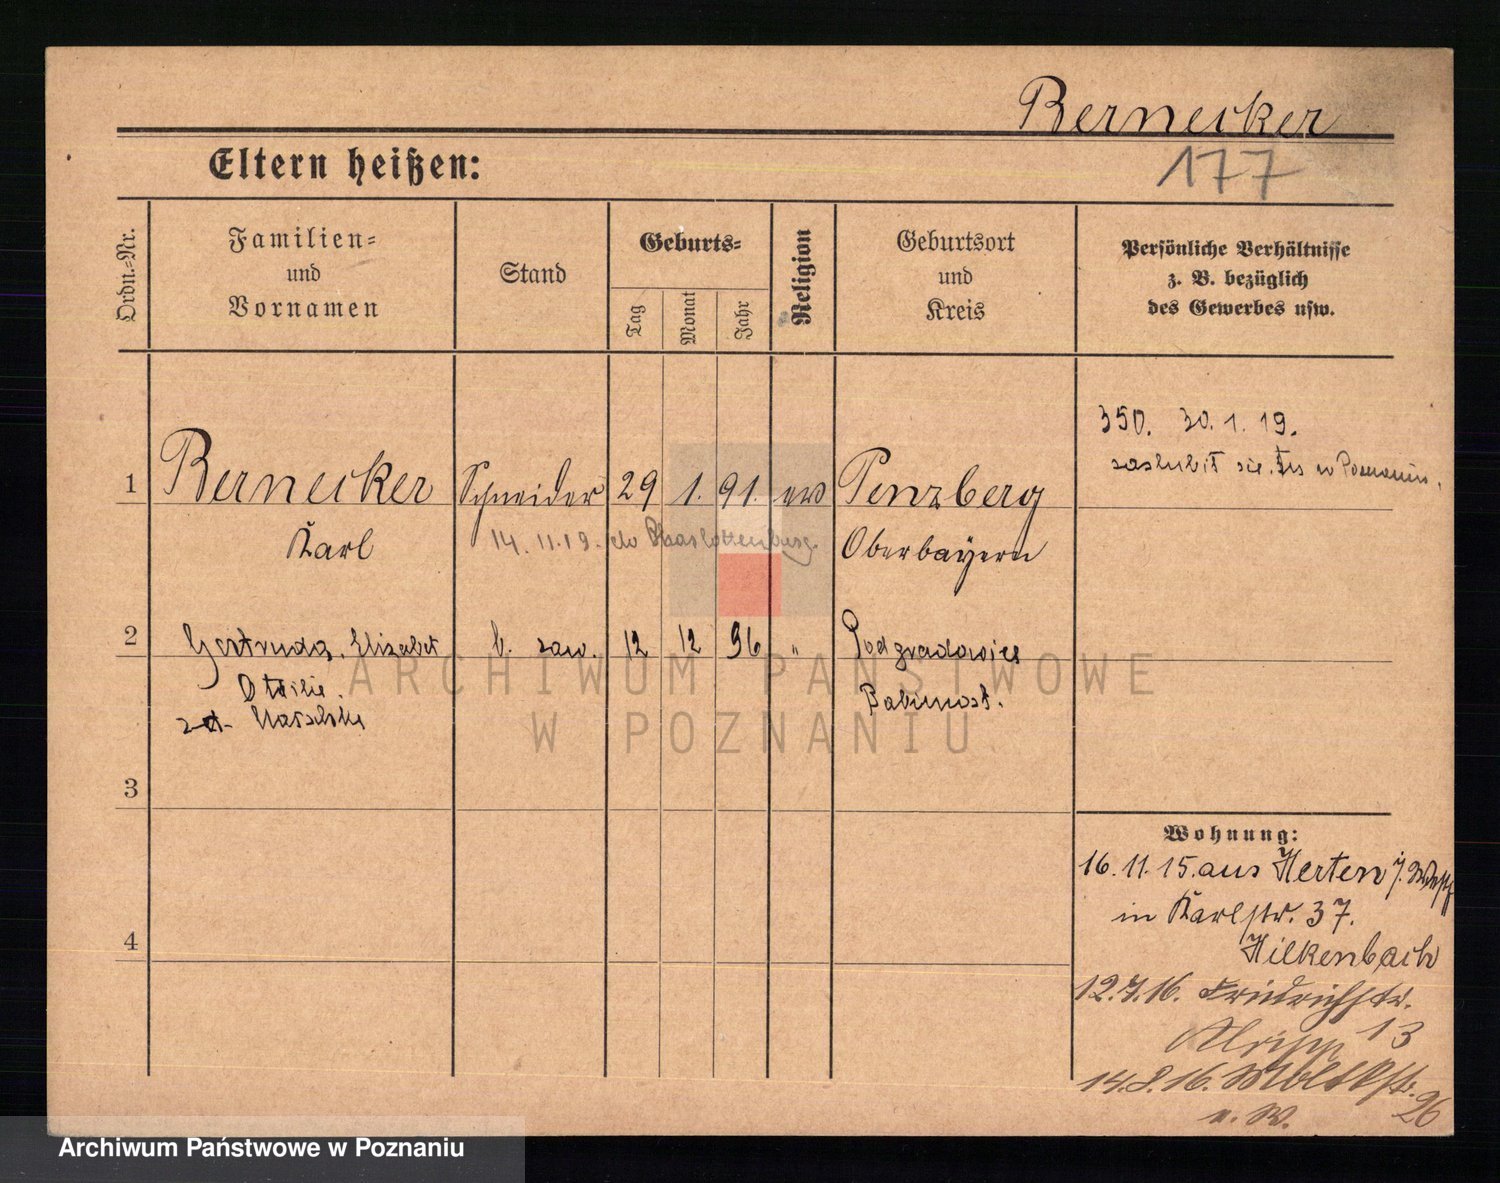 Bernecker
177
Eltern heißen:
Ordn.=Nr.
Familien=
und
Vornamen
Stand
Geburts=
Tag
Monat
Jahr
Religion
Geburtsort
und
Kreis
Persönliche Verhältnisse
z. B. bezüglich
des Gewerbes usw.
350. 30. 1. 19.
w
1 Bernecker Schneider 29 1. 91. ev Penzberg
Karl 14. 11. 19. do Charlottenburg Oberbayern
2 Gertruda, Elisabet b. zaw. 12 12 96 " Podgradowice
Ottilie. Babimost.
3
4
Wohnung:
16. 11. 15. aus Herten i. Westf
in Karlstr. 37.
Hilkenbach
12. 7. 16. Friedrichstr.
13
14. 8. 16. Moltkestr.
26
ARCHIWUM PAŃSTWOWE
W POZNANIU
Archiwum Państwowe w Poznaniu